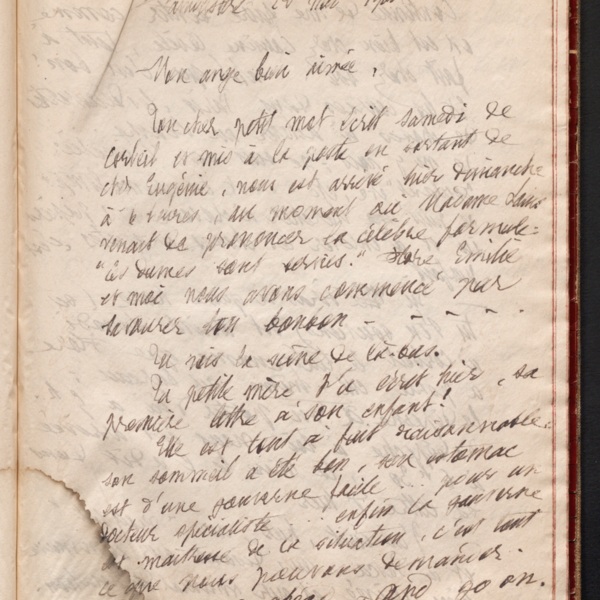 Mon ange bien aimée,
Ton cher petit mot écrit samedi de
Corbeil et mis à la poste en sortant de
chez Eugénie, nous est arrivé hier dimanche
à 6 heures, au moment où Madame Louis
venait de prononcer la célèbre formule :
"Ces dames sont servies." Emilie
et moi nous avons commencé par
savourer ton bonbon - - - - -
Tu vois la scène de là-bas.
Ta petite mère t'a écrit hier, sa
première lettre à son enfant !
Elle est tout à fait raisonnable,
son sommeil a été bon, son estomac
est d'une gouverne facile ... pour un
docteur spécialiste ... enfin la gouverne
est maitresse de la situation, c'est tout
ce que nous pouvons demander.
and go on.